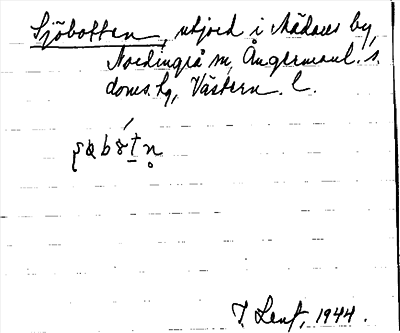 Sjöbotten, utjord i Mädans by,
Nordingrå sn, Ångermanl. s.
doms. hg, Västern. l.
J. Lenf, 1944.